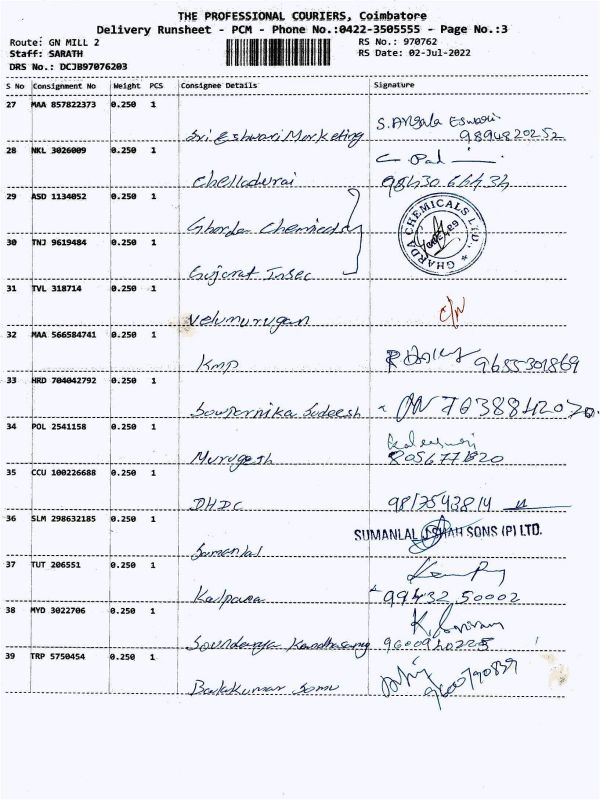 THE PROFESSIONAL COURIERS, Coimbatore
Delivery Runsheet - PCM - Phone No.:0422-3505555 - Page No.:3
Route: GN MILL 2 RS No.: 970762
Staff: SARATH RS Date: 02-Jul-2022
DRS No.: DCJB97076203
S No Consignment No Weight PCS Consignee Details Signature
27 MAA 857822373 0.250 1
Sri Eshwari Marketing S. Angala Eswari
9894820252
28 NKL 3026009 0.250 1
Chelladurai
29 ASD 1134052 0.250 1
Gharda Chemicals GHARDA CHEMICALS LTD.,
30 TNJ 9619484 0.250 1
Gujarat Insec
31 TVL 318714 0.250 1
Velumurugan
32 MAA 566584741 0.250 1
KMP 9655301869
33 HRD 704042792 0.250 1
Sowparnika Sudeesh
34 POL 2541158 0.250 1
Murugesh
35 CCU 100226688 0.250 1
DHDC 9817543814
36 SLM 298632185 0.250 1
Sumanlal SUMANLAL J SHAH SONS (P) LTD.
37 TUT 206551 0.250 1
Kalpana 99432 50002
38 MYD 3022706 0.250 1
Soundarya Kandhasamy
39 TRP 5750454 0.250 1
Balakumar Somu 9600790839